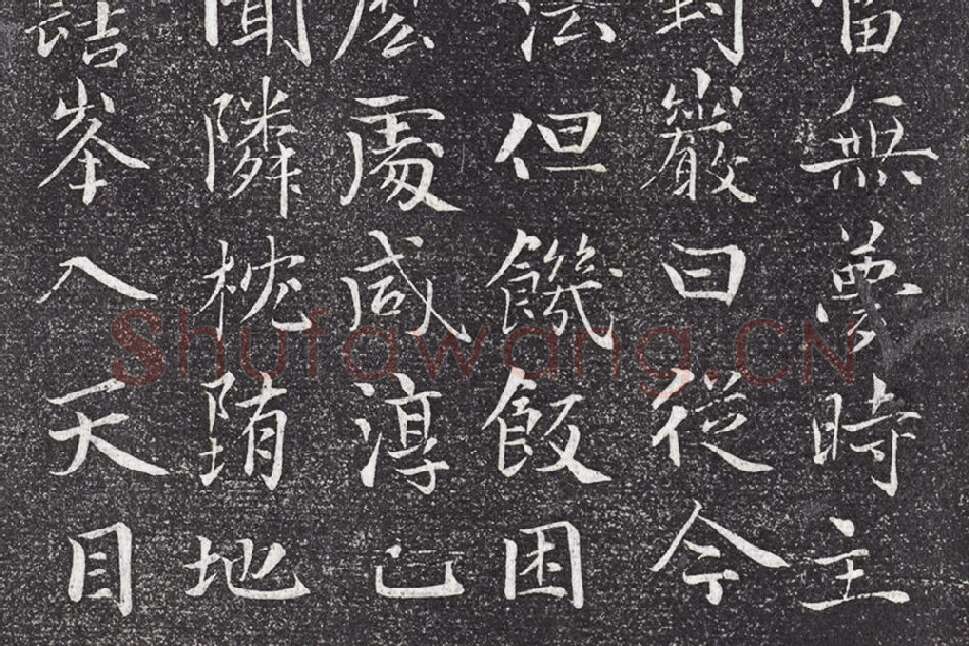 當無夢時主
對巖曰從今
法但饑飯困
麽處咸淳己
聞隣枕墮地
詰峯入天目
Shufawang.CN